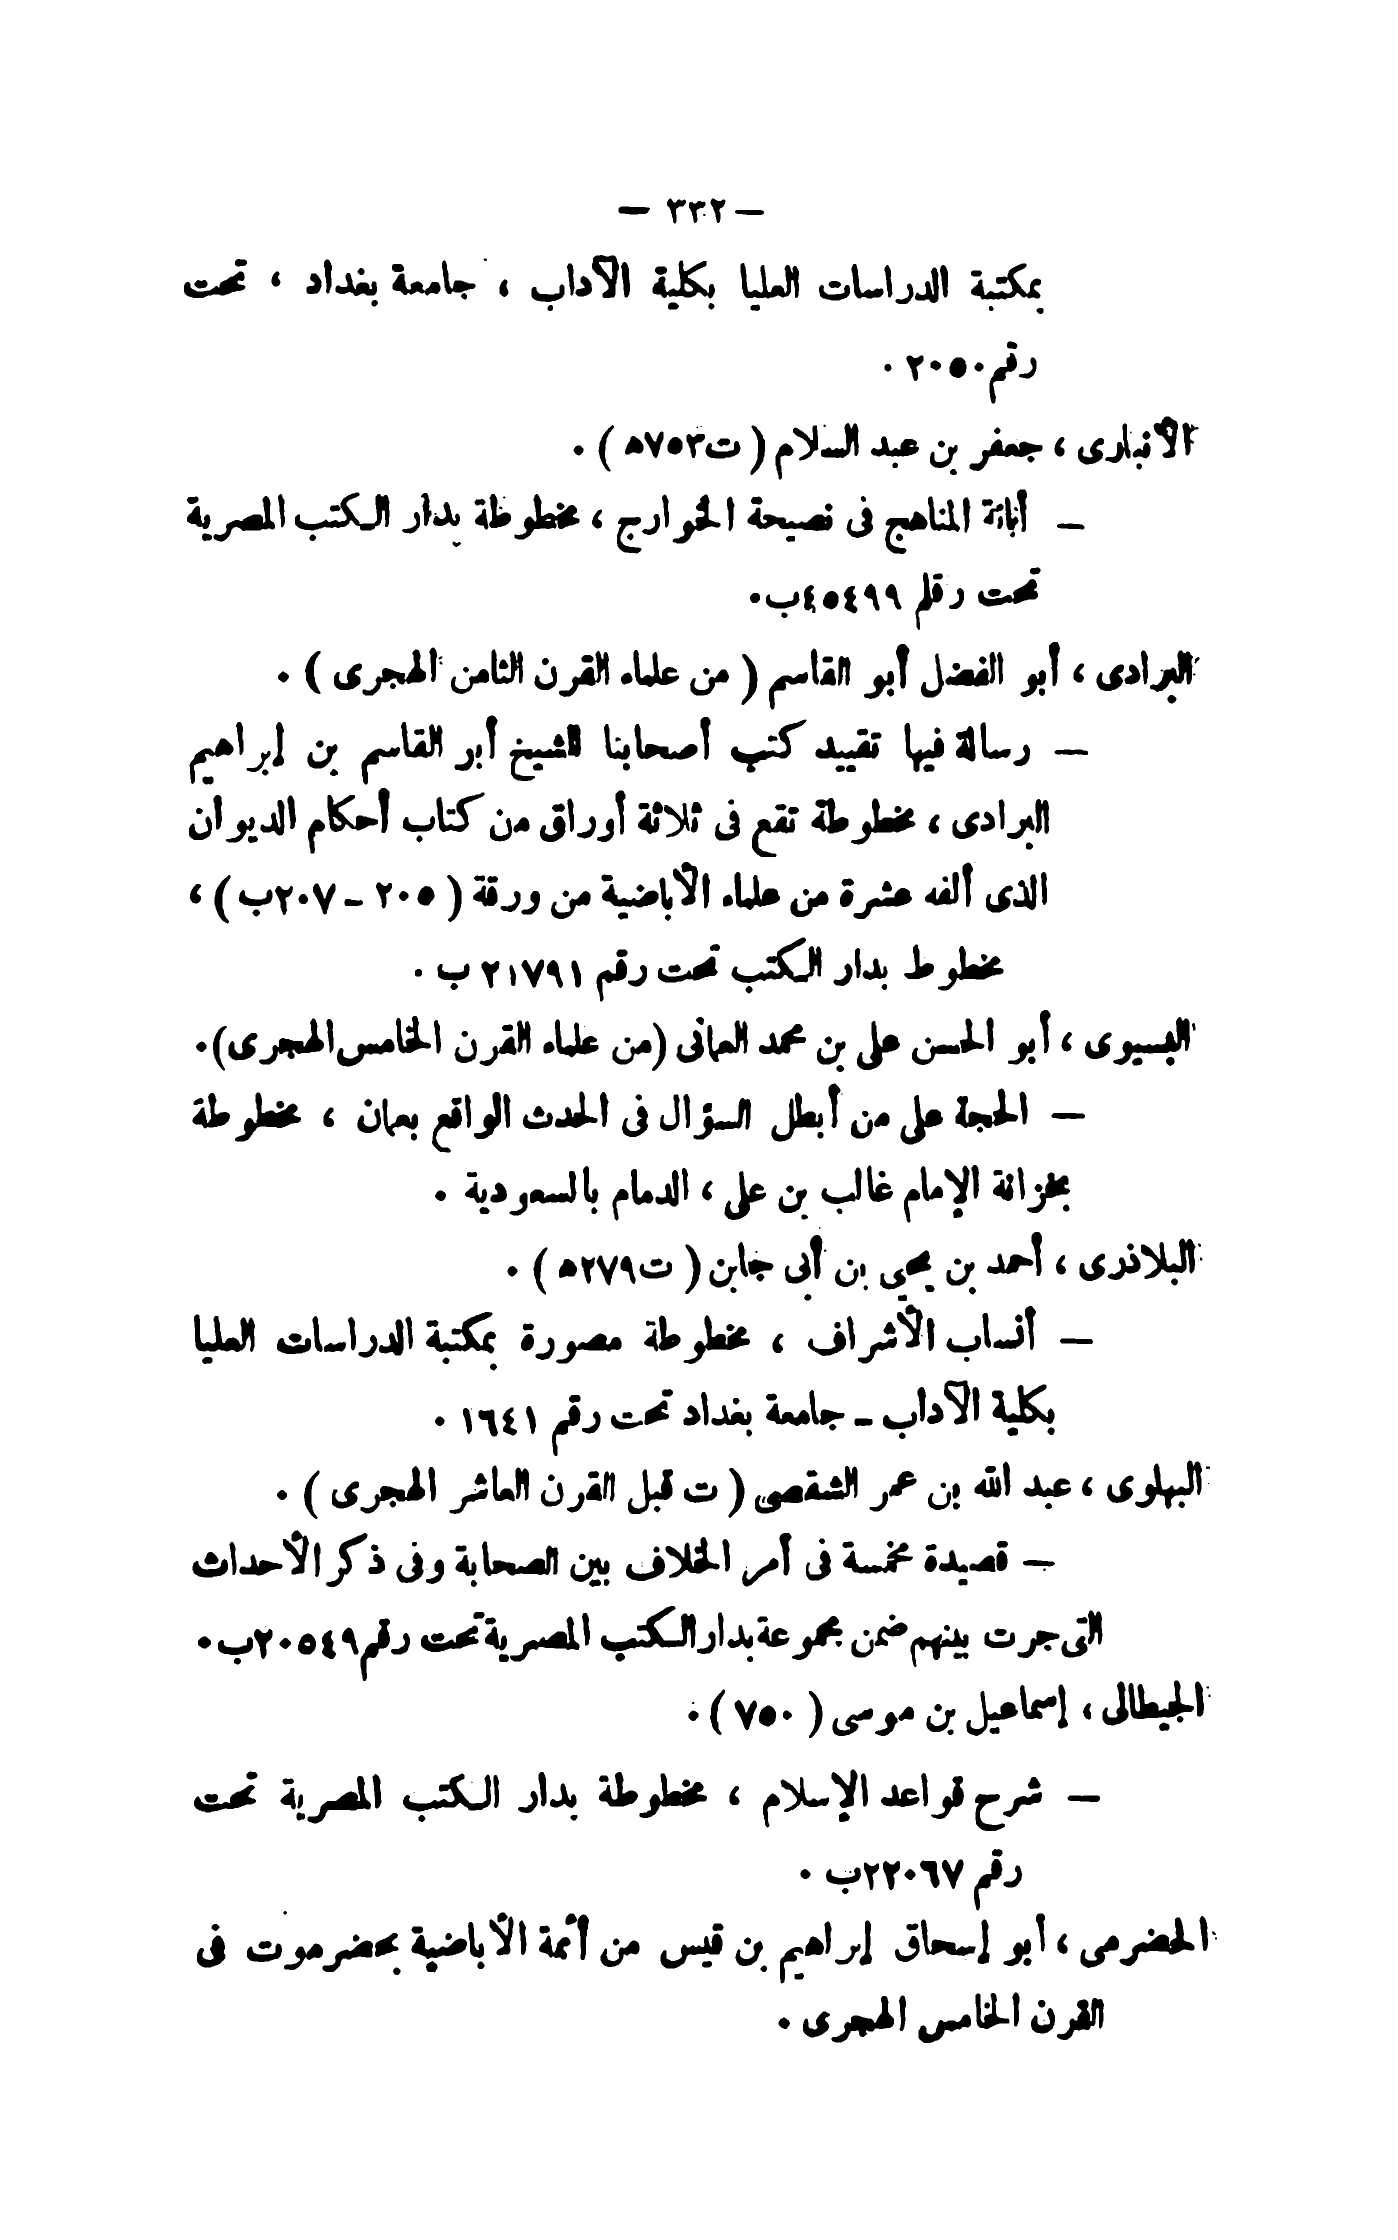 — ٣٣٢ —
بمكتبة الدراسات العليا بكلية الآداب ، جامعة بغداد ، تحت
رقم ٢٠٥٠ .
الأنبارى ، جعفر بن عبد السلام ( ت٧٥٣ه ) .
— أبانة المناهج فى نصيحة الخوارج ، مخطوطة بدار الكتب المصرية
تحت رقلم ٤٥٤٩٩ب .
البرادى ، أبو الفضل أبو القاسم ( من علماء القرن الثامن الهجرى ) .
— رسالة فيها تقييد كتب أصحابنا للشيخ أبر القاسم بن إبراهيم
البرادى ، مخطوطة تقع فى ثلاثة أوراق من كتاب أحكام الديوان
الذى ألفه عشرة من علماء الأباضية من ورقة ( ٢٠٥ – ٢٠٧ب ) ،
مخطوط بدار الكتب تحت رقم ٢١٧٩١ ب .
البسيوى ، أبو الحسن على بن محمد العمانى (من علماء القرن الخامس الهجرى) .
— الحجة على من أبطل السؤال فى الحدث الواقع بعمان ، مخطوطة
بخزانة الإمام غالب بن على ، الدمام بالسعودية .
البلاذرى ، أحمد بن يحيى بن أبى جابن ( ت٢٧٩ه ) .
— أنساب الأشراف ، مخطوطة مصورة بمكتبة الدراسات العليا
بكلية الآداب – جامعة بغداد تحت رقم ١٦٤١ .
البهلوى ، عبد الله بن عمر الشقصى ( ت قبل القرن العاشر الهجرى ) .
— قصيدة مخمسة فى أمر الخلاف بين الصحابة وفى ذكر الأحداث
التى جرت بينهم ضمن مجموعة بدار الكتب المصرية تحت رقم ٢٠٥٤٩ب .
الجيطالى ، إسماعيل بن موسى ( ٧٥٠ ) .
— شرح قواعد الإسلام ، مخطوطة بدار الكتب المصرية تحت
رقم ٢٢٠٦٧ب .
الحضرمى ، أبو إسحاق إبراهيم بن قيس من أئمة الأباضية بحضرموت فى
القرن الخامس الهجرى .